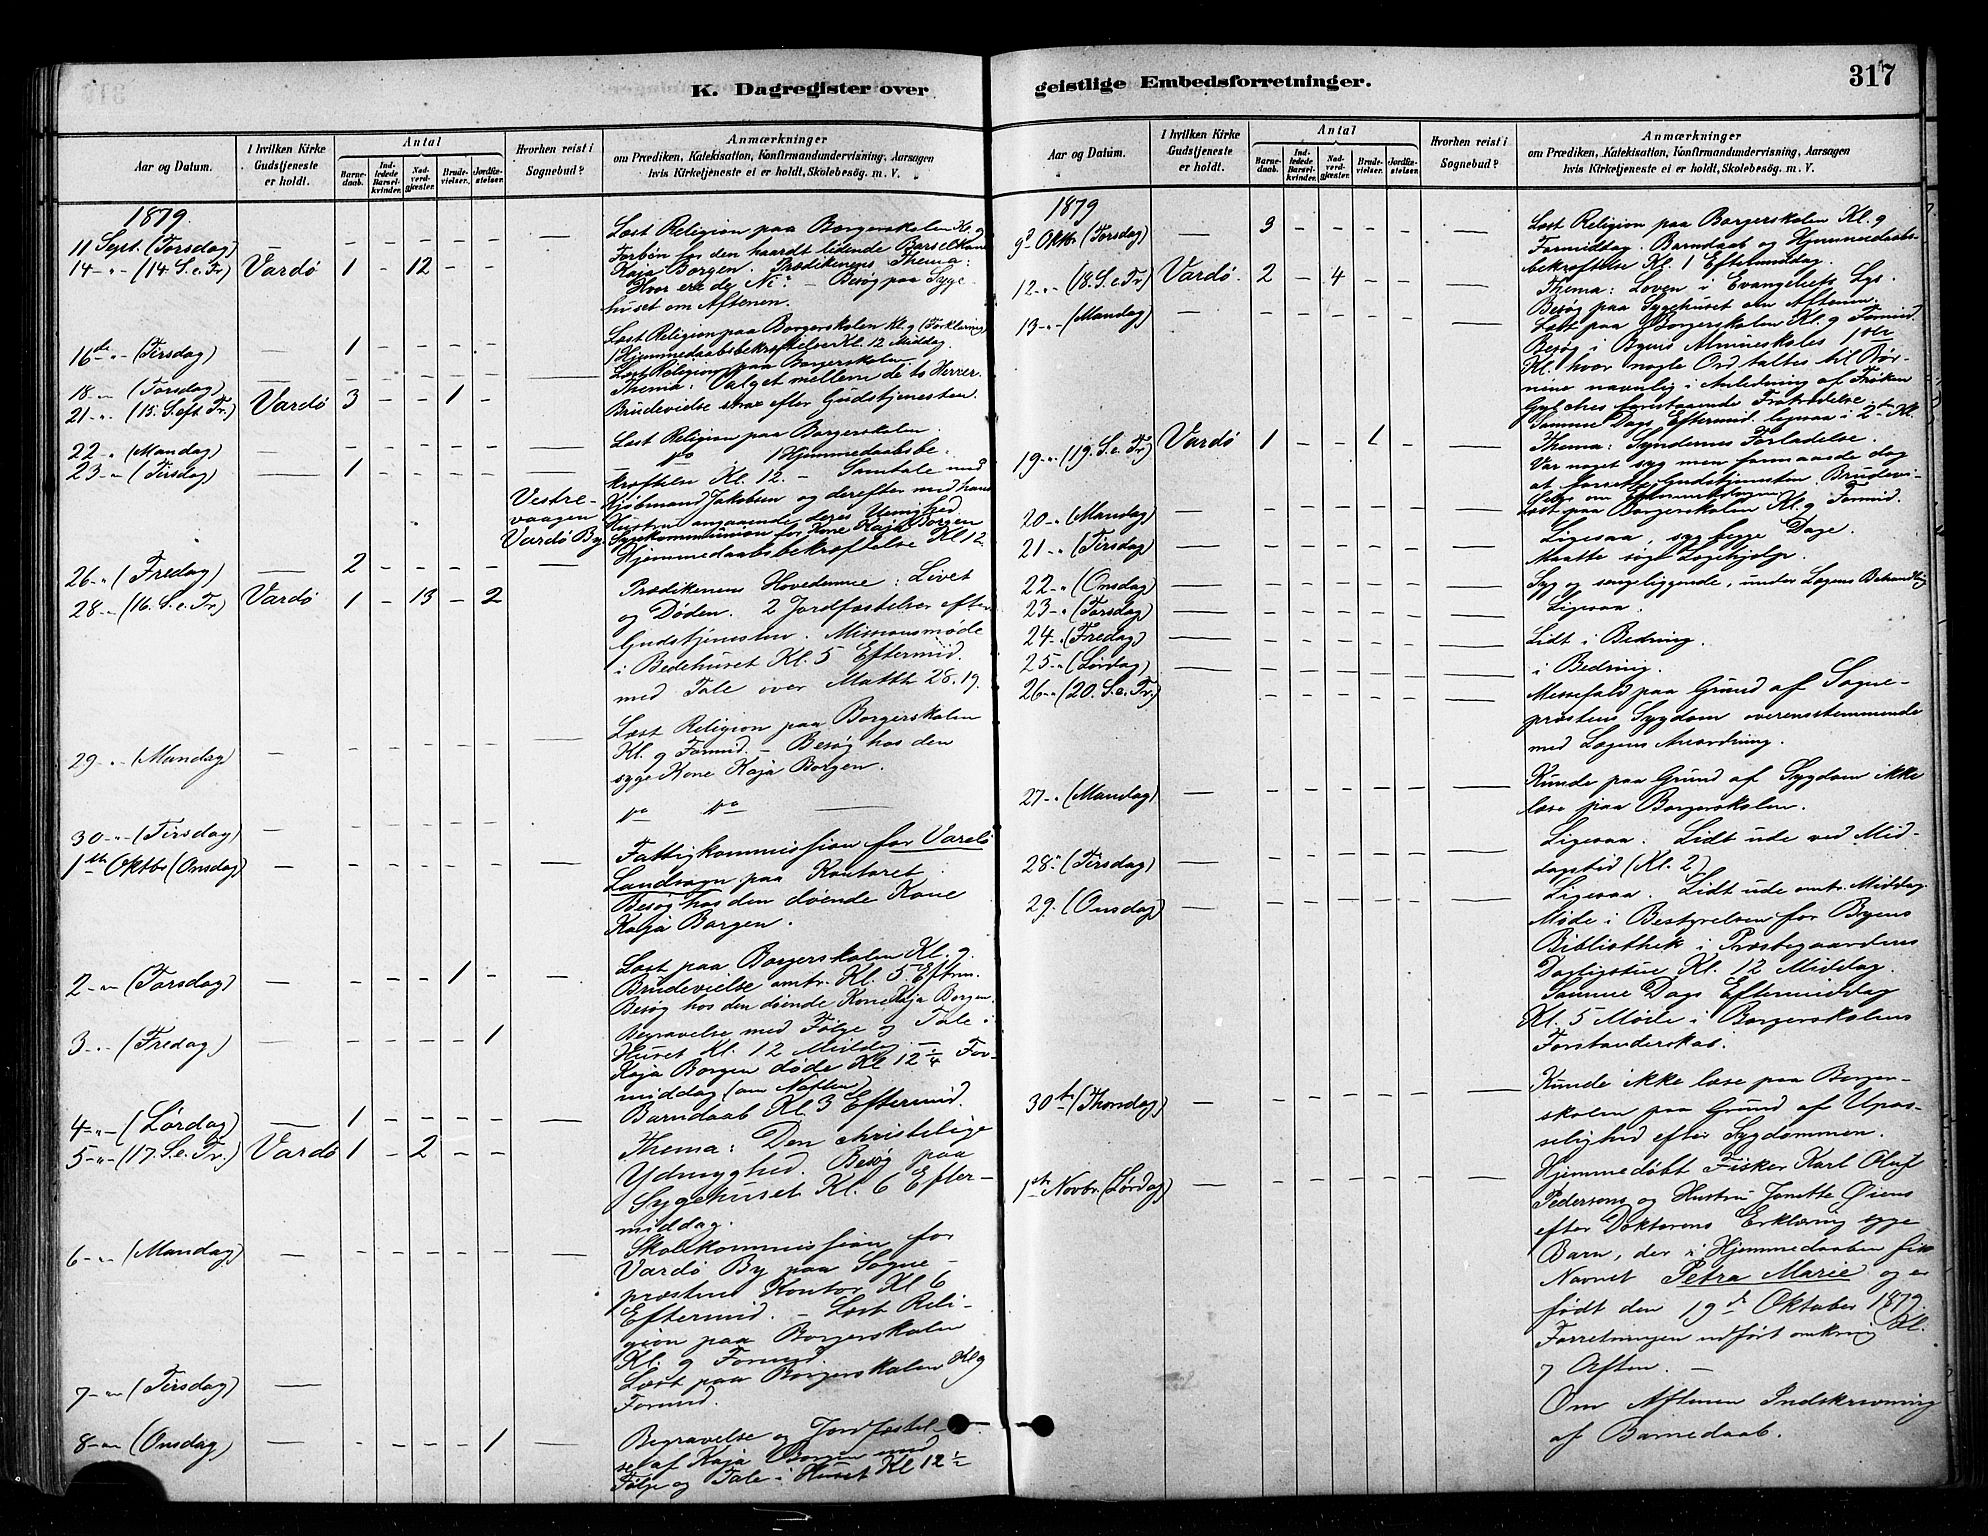 K. Dagregister over
geistlige Embedsforretninger.
317
Aar og Datum.
I hvilken Kirke Gudstjeneste er holdt.
Antal
Barnedaab.
Indledede Barselkvinder.
Nadverdgjæster.
Brudevielser.
Jordfæstelser.
Hvorhen reist i Sognebud?
Anmærkninger
om Prædiken, Katekisation, Konfirmandundervisning, Aarsagen
hvis Kirketjeneste ei er holdt, Skolebesøg. m. V.
1879
11 Sept. (Torsdag) — Læst Religion paa Borgerskolen Kl. 9
14 - " - (14 S. e. Tr) Vardø 1 - 12 - - Forbøn for den haardt lidende Barselkone
Kaja Borgen. Prædikenens Thema:
Hvor ere de Ni? - Besøg paa Syge-
huset om Aftenen.
16de " (Tirsdag) — 1 Læst Religion paa Borgerskolen Kl. 9 (Forklaring)
1 Hjemmedaabsbekræftelse Kl. 12 Middag.
18 - " (Torsdag) — Læst Religion paa Borgerskolen.
21 - " (15. S. eft Tr.) Vardø 3 - - 1 - Thema: Valget mellem de to Herrer.
Brudevielse strax efter Gudstjenesten.
22 " (Mandag) — Læst Religion paa Borgerskolen.
23 - " (Tirsdag) — 1 Do 1 Hjemmedaabsbe-
kræftelse Kl. 12. - Samtale med
Vestre- Kjøbmand Jakobsen og derefter med hans
vaagen Hustru angaaende deres Uenighed.
Vardø By. Sygekommunion for Kone Kaja Borgen
26 - " (Fredag) — 2 Hjemmedaabsbekræftelse Kl 12.
28 - " (16. S. e. Tr.) Vardø 1 - 13 - 2 Prædikenens Hovedemne: Livet
og Døden. 2 Jordfæstelser efter
Gudstjenesten. Missionsmøde
i Bedehuset Kl. 5 Eftermid.
med Tale over Matth 28.19.
29 - " - (Mandag) — Læst Religion paa Borgerskolen
Kl. 9 Formid. - Besøg hos den
syge Kone Kaja Borgen.
30 - " - (Tirsdag) — Do Do
1ste Oktbr (Onsdag) — Fattigkommission for Vardø
Landsogn paa Kontoret.
Besøg hos den døende Kone
Kaja Borgen.
2 - " - (Torsdag) — 1 Læst paa Borgerskolen Kl. 9.
Brudevielse omtr. Kl. 5 Efterm.
Besøg hos den døende Kone Kaja Borgen.
3 - " - (Fredag) — 1 Begravelse med Følge og Tale i
Huset Kl. 12 Middag. -
Kaja Borgen døde Kl 12 1/4 For-
middag (om Natten)
4 - " - (Lørdag) — 1 Barndaab Kl. 3 Eftermid.
5 - " - (17. S. e. Tr.) Vardø 1 - 2 - - Thema: Den christelige
Ydmyghed. Besøg paa
Sygehuset Kl. 6 Efter-
middag.
6 - " - (Mandag) — Skolekommission for
Vardø By paa Sogne-
præstens Kontor Kl 6
Eftermid. - Læst Reli-
gion paa Borgerskolen
Kl. 9 Formid.
7 - " - (Tirsdag) — Læst paa Borgerskolen Kl 9
Formid.
8 - " - (Onsdag) — 1 Begravelse og Jordfæstel-
se af Kaja Borgen med
Følge og Tale i Huset Kl 12 1/2
Aar og Datum.
I hvilken Kirke Gudstjeneste er holdt.
Antal
Barnedaab.
Indledede Barselkvinder.
Nadverdgjæster.
Brudevielser.
Jordfæstelser.
Hvorhen reist i Sognebud?
Anmærkninger
om Prædiken, Katekisation, Konfirmandundervisning, Aarsagen
hvis Kirketjeneste ei er holdt, Skolebesøg. m. V.
1879
9de Oktbr (Torsdag) — 3 Læst Religion paa Borgerskolen Kl. 9
Formiddag. Barndaab og Hjemmedaabs-
bekræftelse Kl. 1 Eftermiddag.
12 - " - (18. S. e Tr) Vardø. 2 - 4 - - Thema: Loven i Evangeliets Lys.
Besøg paa Sygehuset om Aftenen.
13 - " - (Mandag) — Læst paa Borgerskolen Kl. 9 Formid
Besøg i Byens Almueskoles 1ste
Kl. hvor nogle Ord taltes til Bør-
nene navnlig i Anledning af Frøken
forestaaende Fratrædelse.
Samme Dags Eftermid. ligesaa i 2den Kl.
19 - " (19. S. e. Tr) Vardø 1 - - 1 - Thema: Syndernes Forladelse.
Var noget syg men formaaede dog
at forrette Gudstjenesten. Brudevi-
else om Eftermiddagen.
20 - " (Mandag) — Læst paa Borgerskolen Kl. 9 Formid.
21 - " (Tirsdag) — Ligesaa, syg begge Dage.
Maatte søge Lægehjælp.
22 - " (Onsdag) — Syg og sengeliggende, under Lægens Behandling
23 - " (Torsdag) — Ligesaa.
24 - " (Fredag) — Lidt i Bedring.
25 - " (Lørdag) — i Bedring.
26 - " (20. S. e. Tr.) — Messefald paa Grund af Sogne-
præstens Sygdom overensstemmende
med Lægens Anordning.
27 - " (Mandag) — Kunde paa Grund af Sygdom ikke
læse paa Borgerskolen.
28 " (Tirsdag) — Ligesaa. Lidt ude ved Mid-
dagstid (Kl. 2)
29. (Onsdag) — Ligesaa. Lidt ude omtr. Middag.
Møde i Bestyrelsen for Byens
Bibliothek i Præstegaardens
Dagligstue Kl. 12 Middag.
Samme Dags Eftermiddag
Kl. 5 Møde i Borgerskolens
Forstanderskab.
30te (Thorsdag) — Kunde ikke læse paa Borger-
skolen paa Grund af Upas-
selighed efter Sygdommen.
1ste Novbr. (Lørdag) — Hjemmedøbt Fisker Karl Oluf
Pedersens og Hustru Janette Øiens
efter Doktorens Erklæring syge
Barn, der i Hjemmedaaben fik
Navnet Petra Marie og er
født den 19de Oktober 1879.
Forretningen udført omkring Kl.
7 Aften. —
Om Aftenen Indskrivning
af Barnedaab.